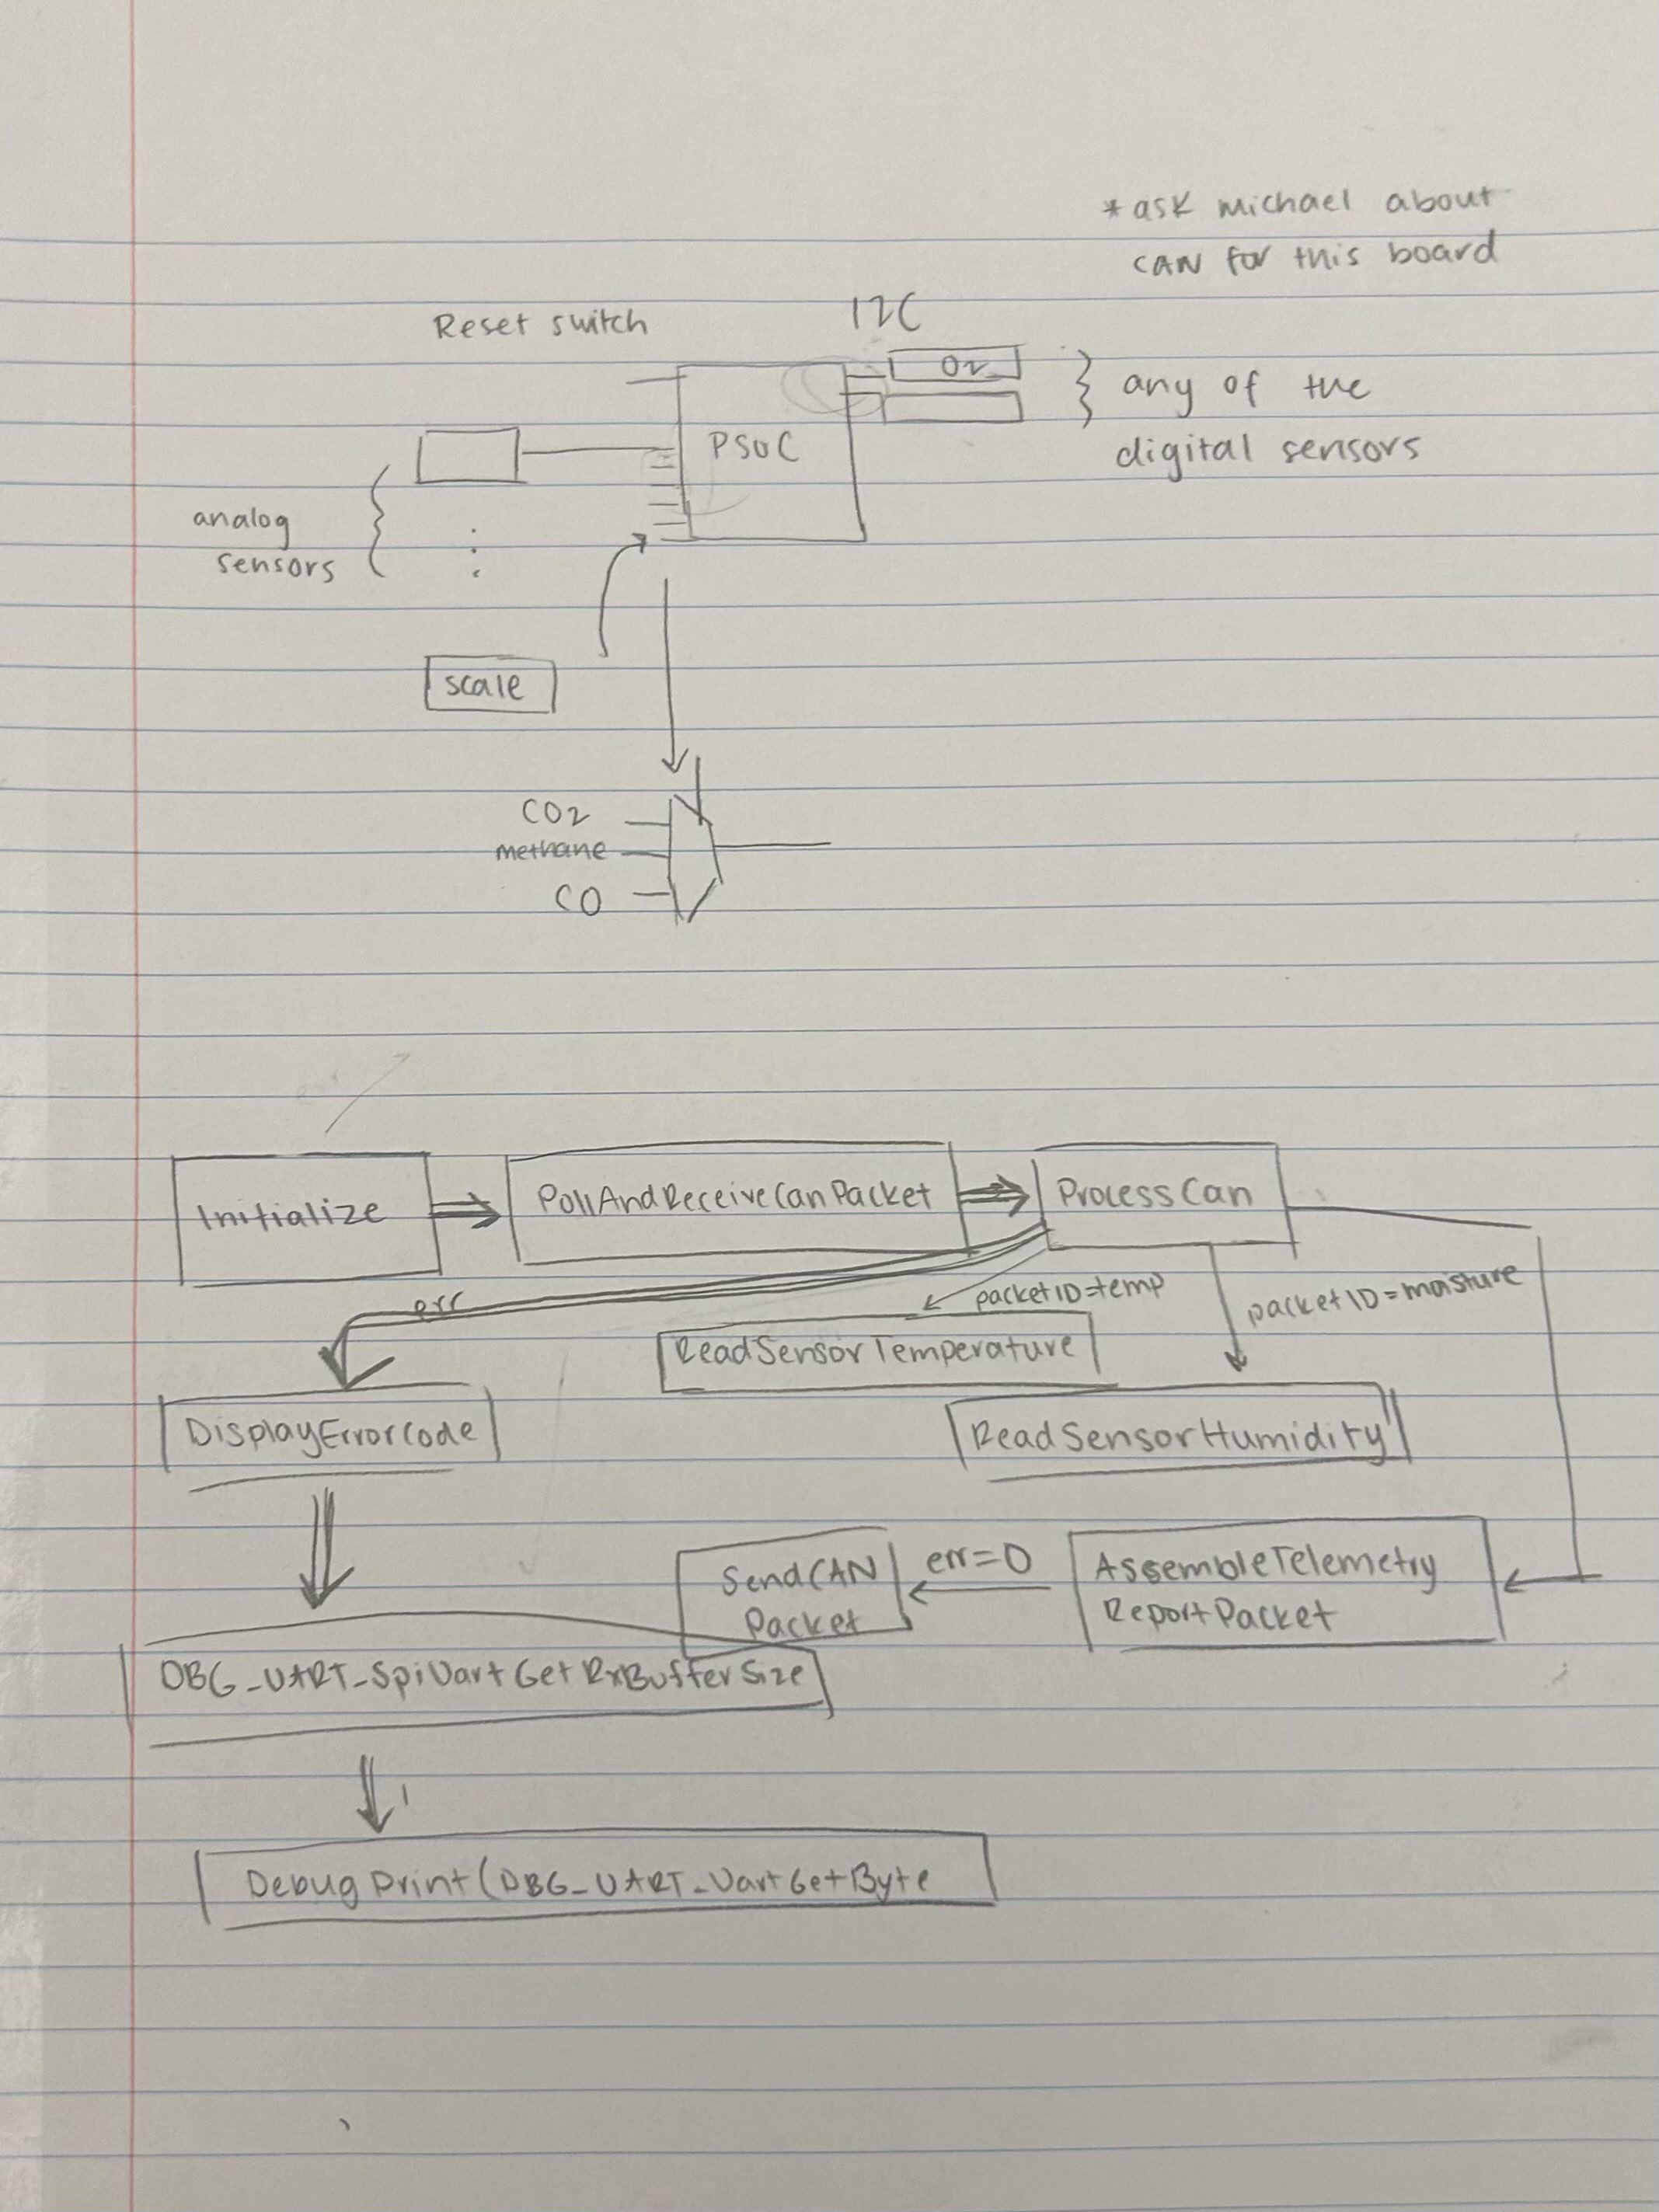 *ask michael about
CAN for this board
Reset switch
I2C
O2
any of the
digital sensors
PSoC
analog
sensors
scale
CO2
methane
CO
err
Initialize
PollAndReceiveCanPacket
ProcessCan
err
packetID=temp
packetID=moisture
ReadSensorTemperature
DisplayErrorCode
ReadSensorHumidity
SendCAN
Packet
err=0
AssembleTelemetry
ReportPacket
DBG_UART_SpiUartGetRxBufferSize
DebugPrint(DBG_UART_UartGetByte